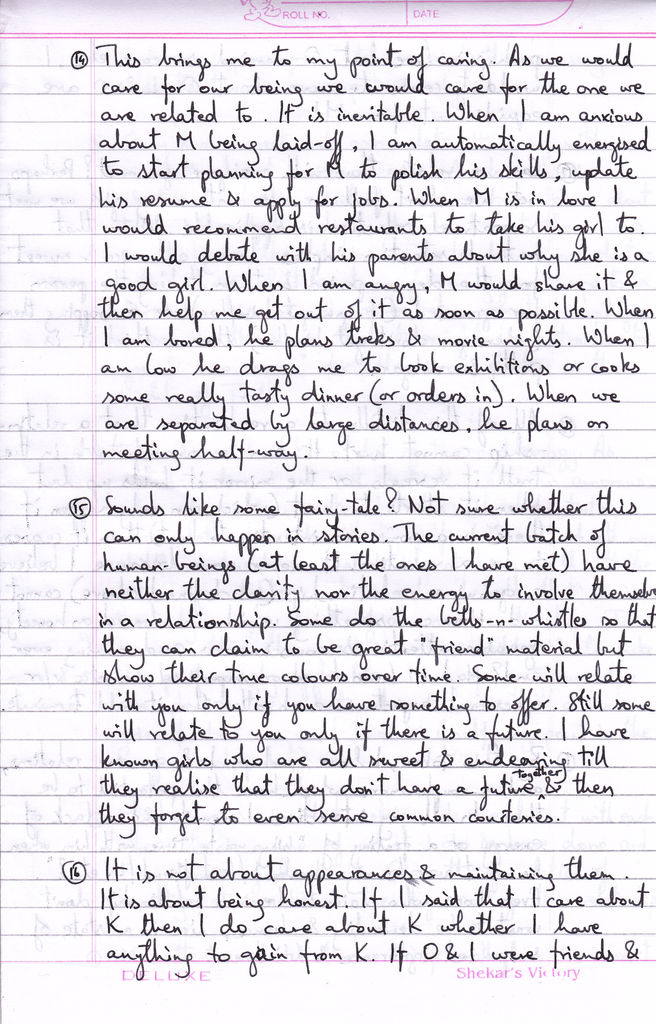 ROLL NO. DATE
14 This brings me to my point of caring. As we would
care for our being we would care for the one we
are related to. It is inevitable. When I am anxious
about M being laid-off, I am automatically energised
to start planning for M to polish his skills, update
his resume & apply for jobs. When M is in love I
would recommend restaurants to take his girl to.
I would debate with his parents about why she is a
good girl. When I am angry, M would share it &
then help me get out of it as soon as possible. When
I am bored, he plans treks & movie nights. When I
am low he drags me to book exhibitions or cooks
some really tasty dinner (or orders in). When we
are separated by large distances, he plans on
meeting half-way.
15 Sounds like some fairy-tale? Not sure whether this
can only happen in stories. The current batch of
human-beings (at least the ones I have met) have
neither the clarity nor the energy to involve themselve
in a relationship. Some do the bells-n-whistles so that
they can claim to be great "friend" material but
show their true colours over time. Some will relate
with you only if you have something to offer. Still some
will relate to you only if there is a future. I have
known girls who are all sweet & endearing till
they realise that they don't have a future together & then
they forget to even serve common courtesies.
16 It is not about appearances & maintaining them.
It is about being honest. If I said that I care about
K then I do care about K whether I have
anything to gain from K. If O & I were friends &
DELUXE Shekar's Victory